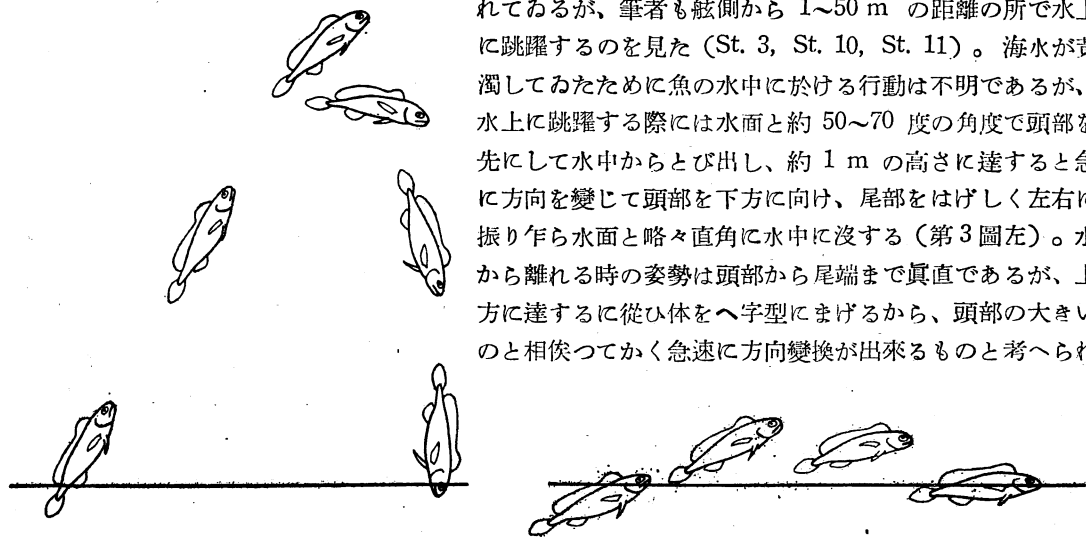 れてゐるが、筆者も舷側から 1~50 m の距離の所で水上
に跳躍するのを見た (St. 3, St. 10, St. 11) 。 海水が
濁してゐたために魚の水中に於ける行動は不明であるが、
水上に跳躍する際には水面と約 50~70 度の角度で頭部を
先にして水中からとび出し、約 1 m の高さに達すると急
に方向を變じて頭部を下方に向け、尾部をはげしく左右に
振り乍ら水面と略々直角に水中に沒する (第3圖左) 。水
から離れる時の姿勢は頭部から尾端まで眞直であるが、上
方に達するに從ひ体をへ字型にまげるから、頭部の大きい
のと相俟つてかく急速に方向變換が出來るものと考へられ